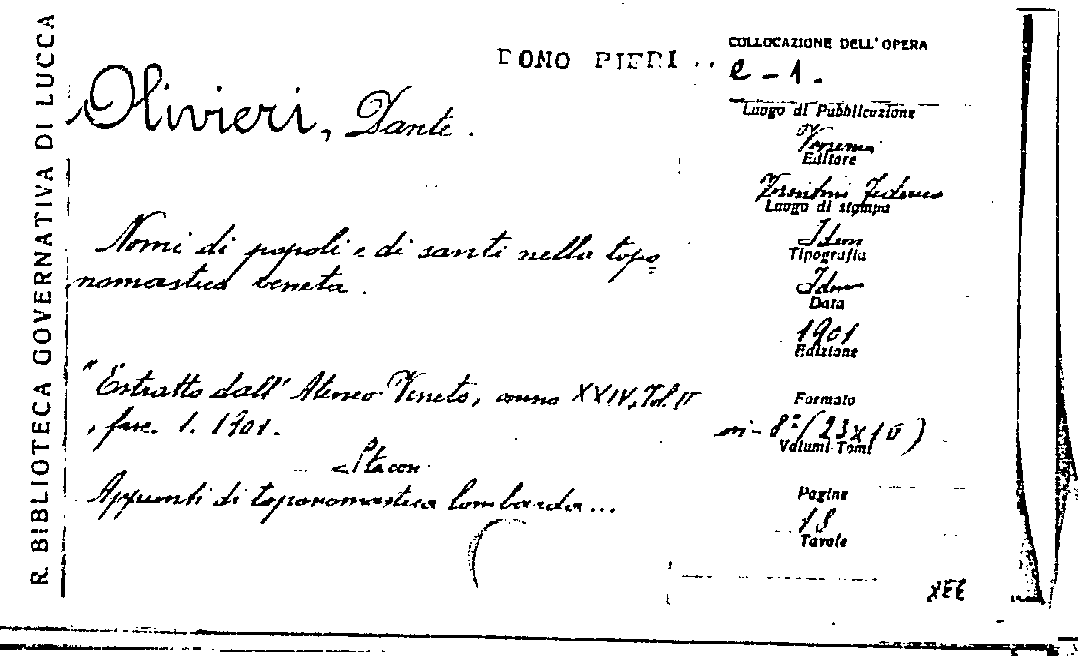 R. BIBLIOTECA GOVERNATIVA DI LUCCA
DONO PIERI
COLLOCAZIONE DELL'OPERA
e - 1 -
Olivieri, Dante.
Luogo di Pubblicazione
Venezia
Editore
Visentini Federico
Luogo di stampa
Idem
Tipografia
Idem
Data
1901
Edizione
Formato
in - 8° (23x16)
Volumi-Tomi
Pagine
18
Tavole
Nomi di popoli e di santi nella topo=
nomastica veneta.
"Estratto dall' Ateneo Veneto, anno XXIV, Vol. II
, fasc. 1. 1901.
Sta con
Appunti di toponomastica lombarda...